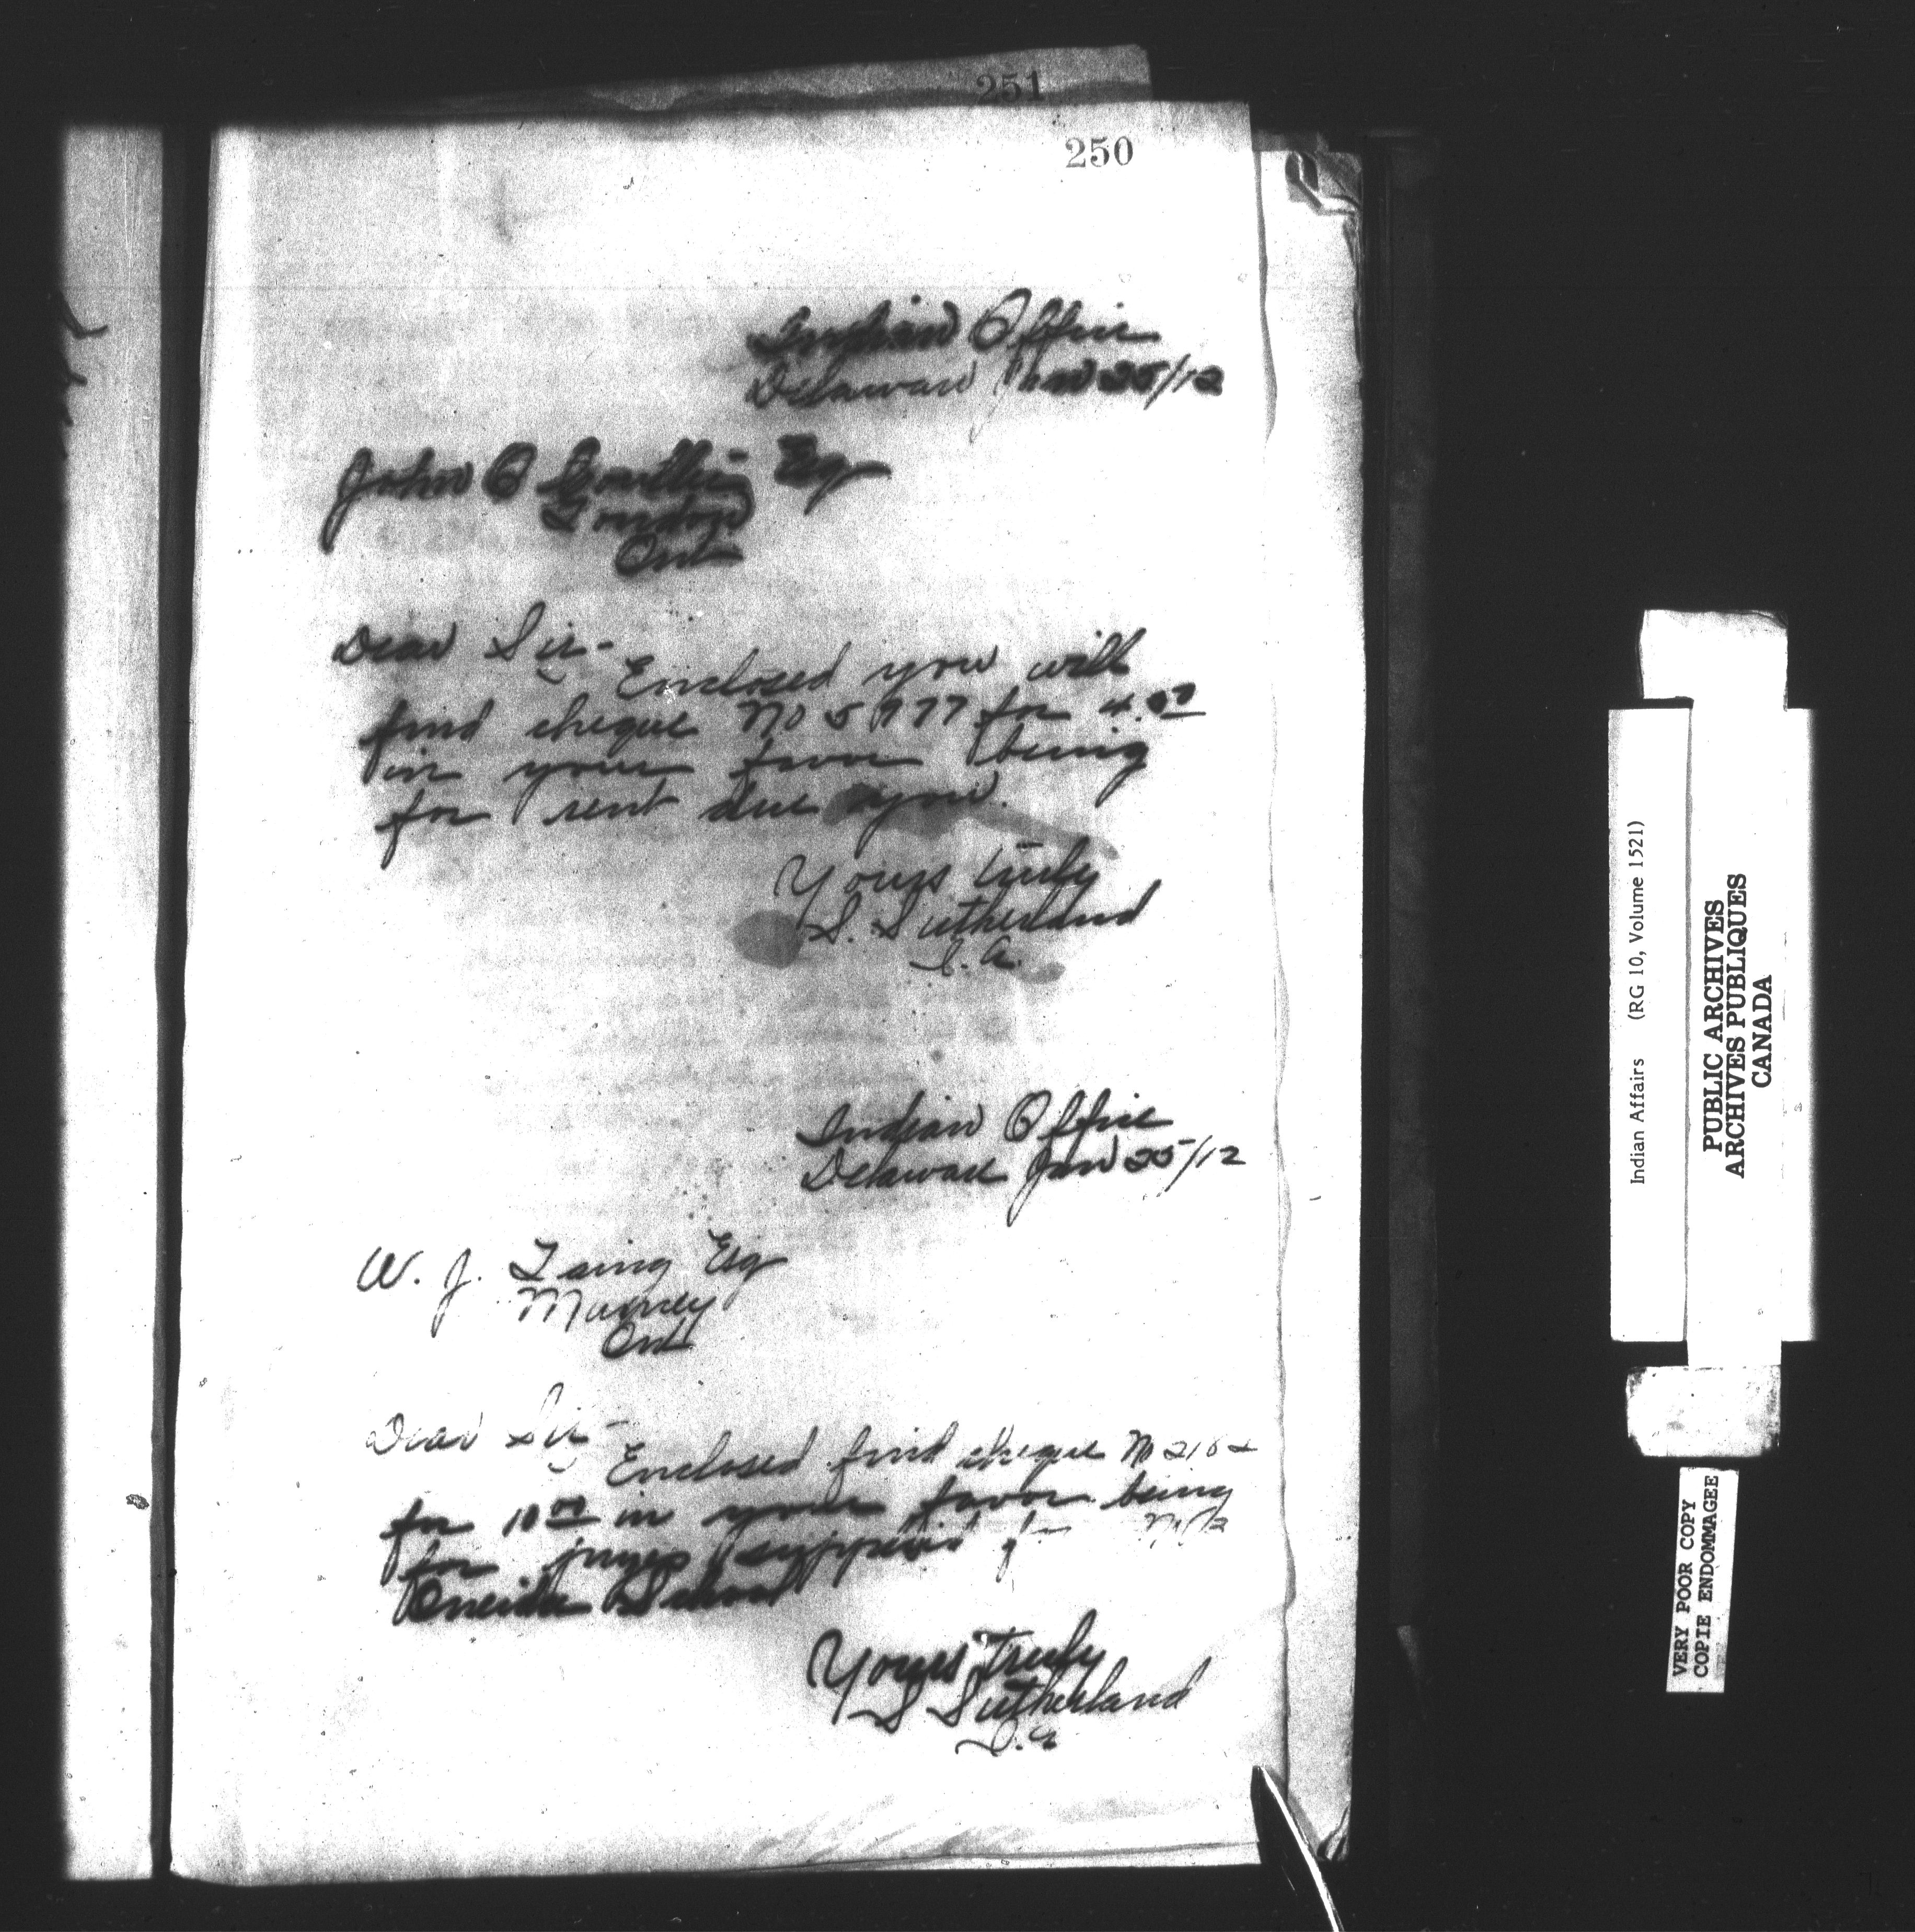 251
250
Indian Office
Delaware Jan 25/12
John C Esq
London
Ont
Dear Sir-
Enclosed you will
find cheque No 5977 for 4.00
in your favor being
for rent due you.
Yours truly
S. Sutherland
I. A.
Indian Office
Delaware Jan 25/12
W. J. Laing Esq
Muncey
Ont
Dear Sir-
Enclosed find cheque No
for 10 00 in your favor being
for supplied
Oneida School
Yours truly
S Sutherland
I. A
Indian Affairs (RG 10, Volume 1521)
PUBLIC ARCHIVES
ARCHIVES PUBLIQUES
CANADA
VERY POOR COPY
COPIE ENDOMMAGEE